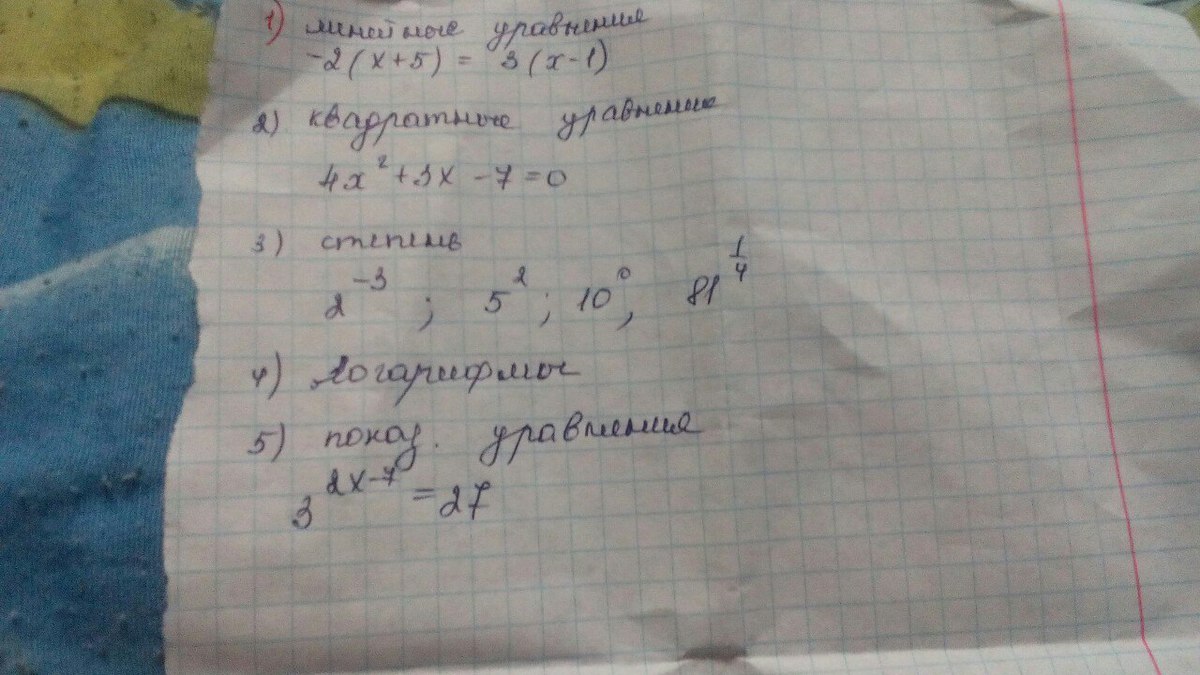 1) линейные уравнения
-2(x+5) = 3(x-1)
2) квадратные уравнение
4x² + 3x - 7 = 0
3) степень
2⁻³ ; 5² ; 10⁰, 81^(1/4)
4) Логарифмы
5) показ. уравнения
3^(2x-7) = 27